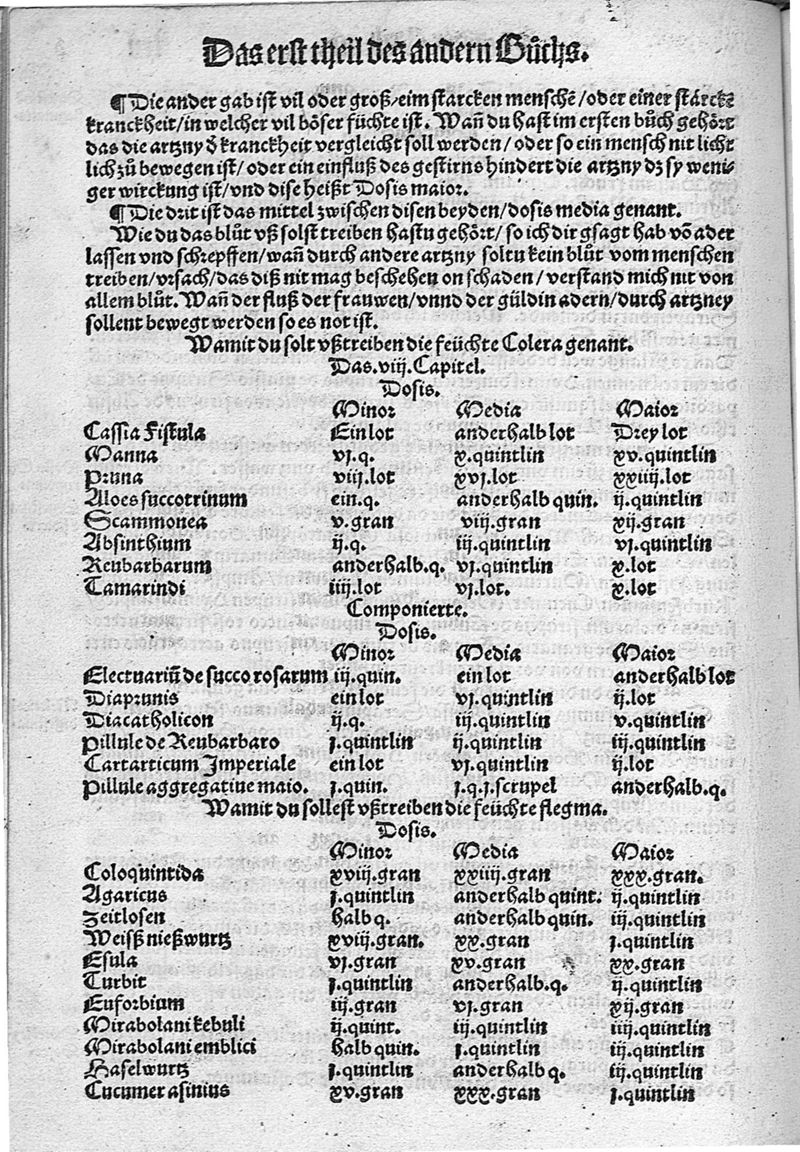 Das erst theil des andern Bůchs.
¶ Die ander gab ist vil oder groß/eim starcken menschẽ/oder einer starcke
kranckheit/in welcher vil böser füchte ist. Wañ du hast im ersten bůch gehört
das die artzny ð kranckheit vergleicht soll werden/oder so ein mensch nit licht
lich zů bewegen ist/oder ein einfluß des gestirns hindert die artzny dz sy weni-
ger wirckung ist/vnd dise heißt Dosis maior.
¶ Die drit ist das mittel zwischen disen beyden/dosis media genant.
Wie du das blůt vß solst treiben hastu gehört/so ich dir gsagt hab võ ader
lassen vnd schrepffen/wañ durch andere artzny soltu kein blůt vom menschen
treiben/vrsach/das diß nit mag beschehen on schaden/verstand mich nit von
allem blůt. Wañ der fluß der frauwen/vnnd der güldin adern/durch artzney
sollent bewegt werden so es not ist.
Wamit du solt vßtreiben die feüchte Colera genant.
Das.viij.Capitel.
Dosis.
Minor Media Maior
Cassia Fistula Ein lot anderhalb lot Drey lot
Manna vj.q. x.quintlin xv.quintlin
Pruna viij.lot xvj.lot xxiiij.lot
Aloes succotrinum ein.q. anderhalb quin. ij.quintlin
Scammonea v.gran viij.gran xij.gran
Absinthium ij.q. iij.quintlin vj.quintlin
Reubarbarum anderhalb.q. vj.quintlin x.lot
Tamarindi iiij.lot vj.lot. x.lot
Componierte.
Dosis.
Minor Media Maior
Electuariũ de succo rosarum iij.quin. ein lot anderhalb lot
Diaprunis ein lot vj.quintlin ij.lot
Diacatholicon ij.q. iij.quintlin v.quintlin
Pillule de Reubarbaro j.quintlin ij.quintlin iij.quintlin
Cartarticum Imperiale ein lot vj.quintlin ij.lot
Pillule aggregatiue maio. j.quin. j.q.j.scrupel anderhalb.q.
Wamit du sollest vßtreiben die feüchte flegma.
Dosis.
Minor Media Maior
Coloquintida xviij.gran xxiiij.gran xxx.gran.
Agaricus j.quintlin anderhalb quint. ij.quintlin
Zeitlosen halb q. anderhalb quin. iij.quintlin
Weiss nießwurtz xviij.gran. xx.gran j.quintlin
Esula vj.gran xv.gran xx.gran
Turbit j.quintlin anderhalb.q. ij.quintlin
Euforbium iij.gran vj.gran xij.gran
Mirabolani kebuli ij.quint. iij.quintlin iiij.quintlin
Mirabolani emblici halb quin. j.quintlin iij.quintlin
Haselwurtz j.quintlin anderhalb q. iij.quintlin
Cucumer asinius xv.gran xxx.gran j.quintlin